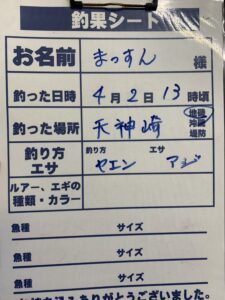 釣果シート
お名前 まっすん 様
釣った日時 4月2日13時頃
釣った場所 天神崎 地磯 沖磯 堤防
釣り方 エサ 釣り方 ヤエン エサ アジ
ルアー、エギの種類・カラー
魚種 サイズ
魚種 サイズ
魚種 サイズ
ありがとうございました。